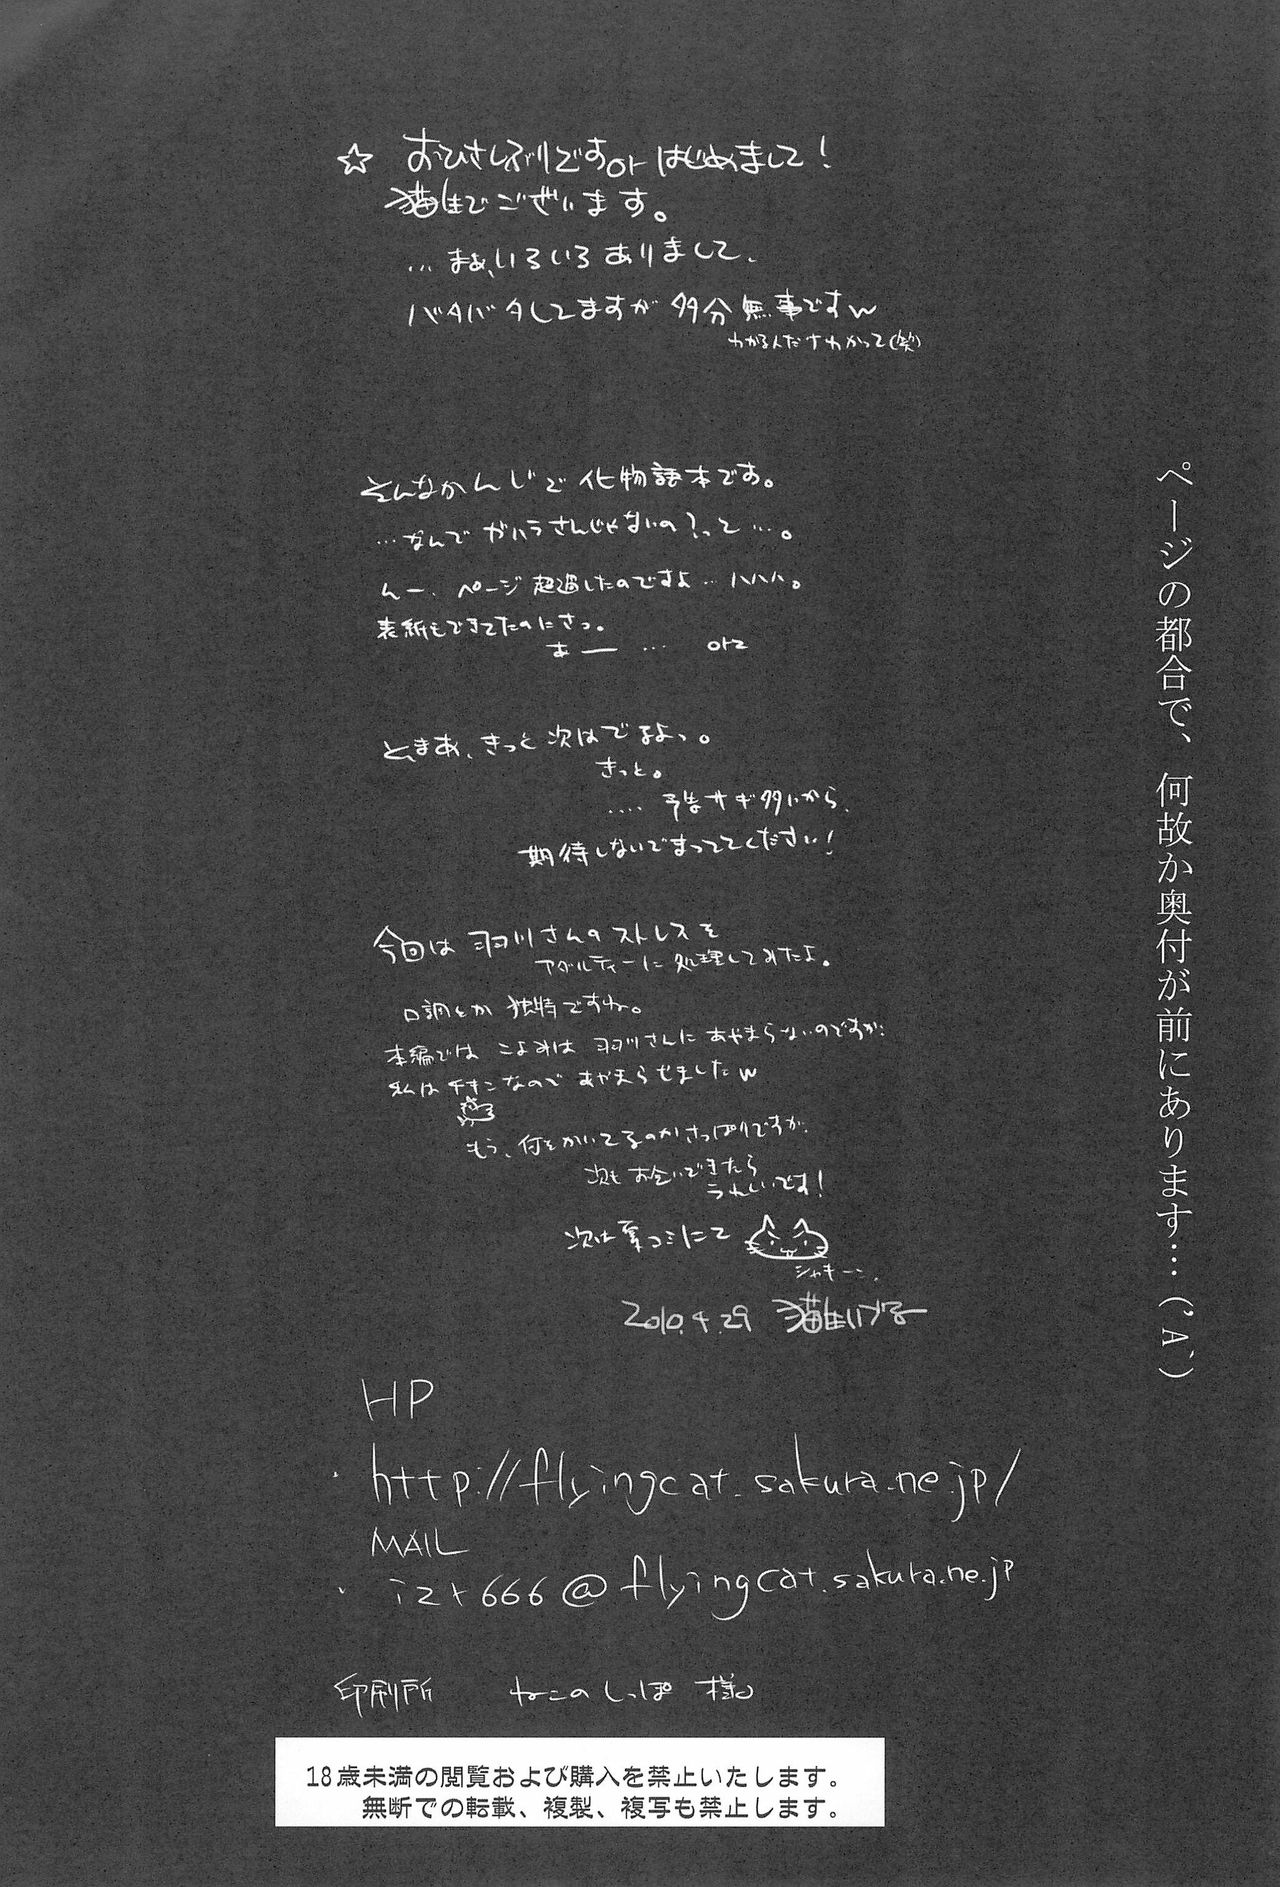 ページの都合で、何故か奥付が前にあります…（'A`）
☆ おひさしぶりですorはじめまして！
猫生でございます。
…まぁ、いろいろありまして、
バタバタしてますが多分無事ですw
わかる人だけわかって(笑)
そんなかんじで化物語本です。
…なんでガハラさんじゃないの？って…。
んー、ページ超過したのですよ…ハハハ。
表紙もできてたのにさっ。
あー … orz
と、まあ、きっと次はでるよっ。
きっと。
‥‥予告サギ多いから、
期待しないでまっててください！
今回は羽川さんのストレスを
アダルティーに処理してみたよ。
口調とか独特ですね。
本編ではこよみは羽川さんにあやまらないのですが、
私はチキンなのであやまらせましたw
もう、何をかいてるのかさっぱりですが、
次もお会いできたら
うれしいです！
次は夏コミにて
シャキーン。
2010.4.29 猫生いづる
HP
・http://flyingcat.sakura.ne.jp/
MAIL
・izt666@flyingcat.sakura.ne.jp
印刷所 ねこのしっぽ 様
18歳未満の閲覧および購入を禁止いたします。
無断での転載、複製、複写も禁止します。